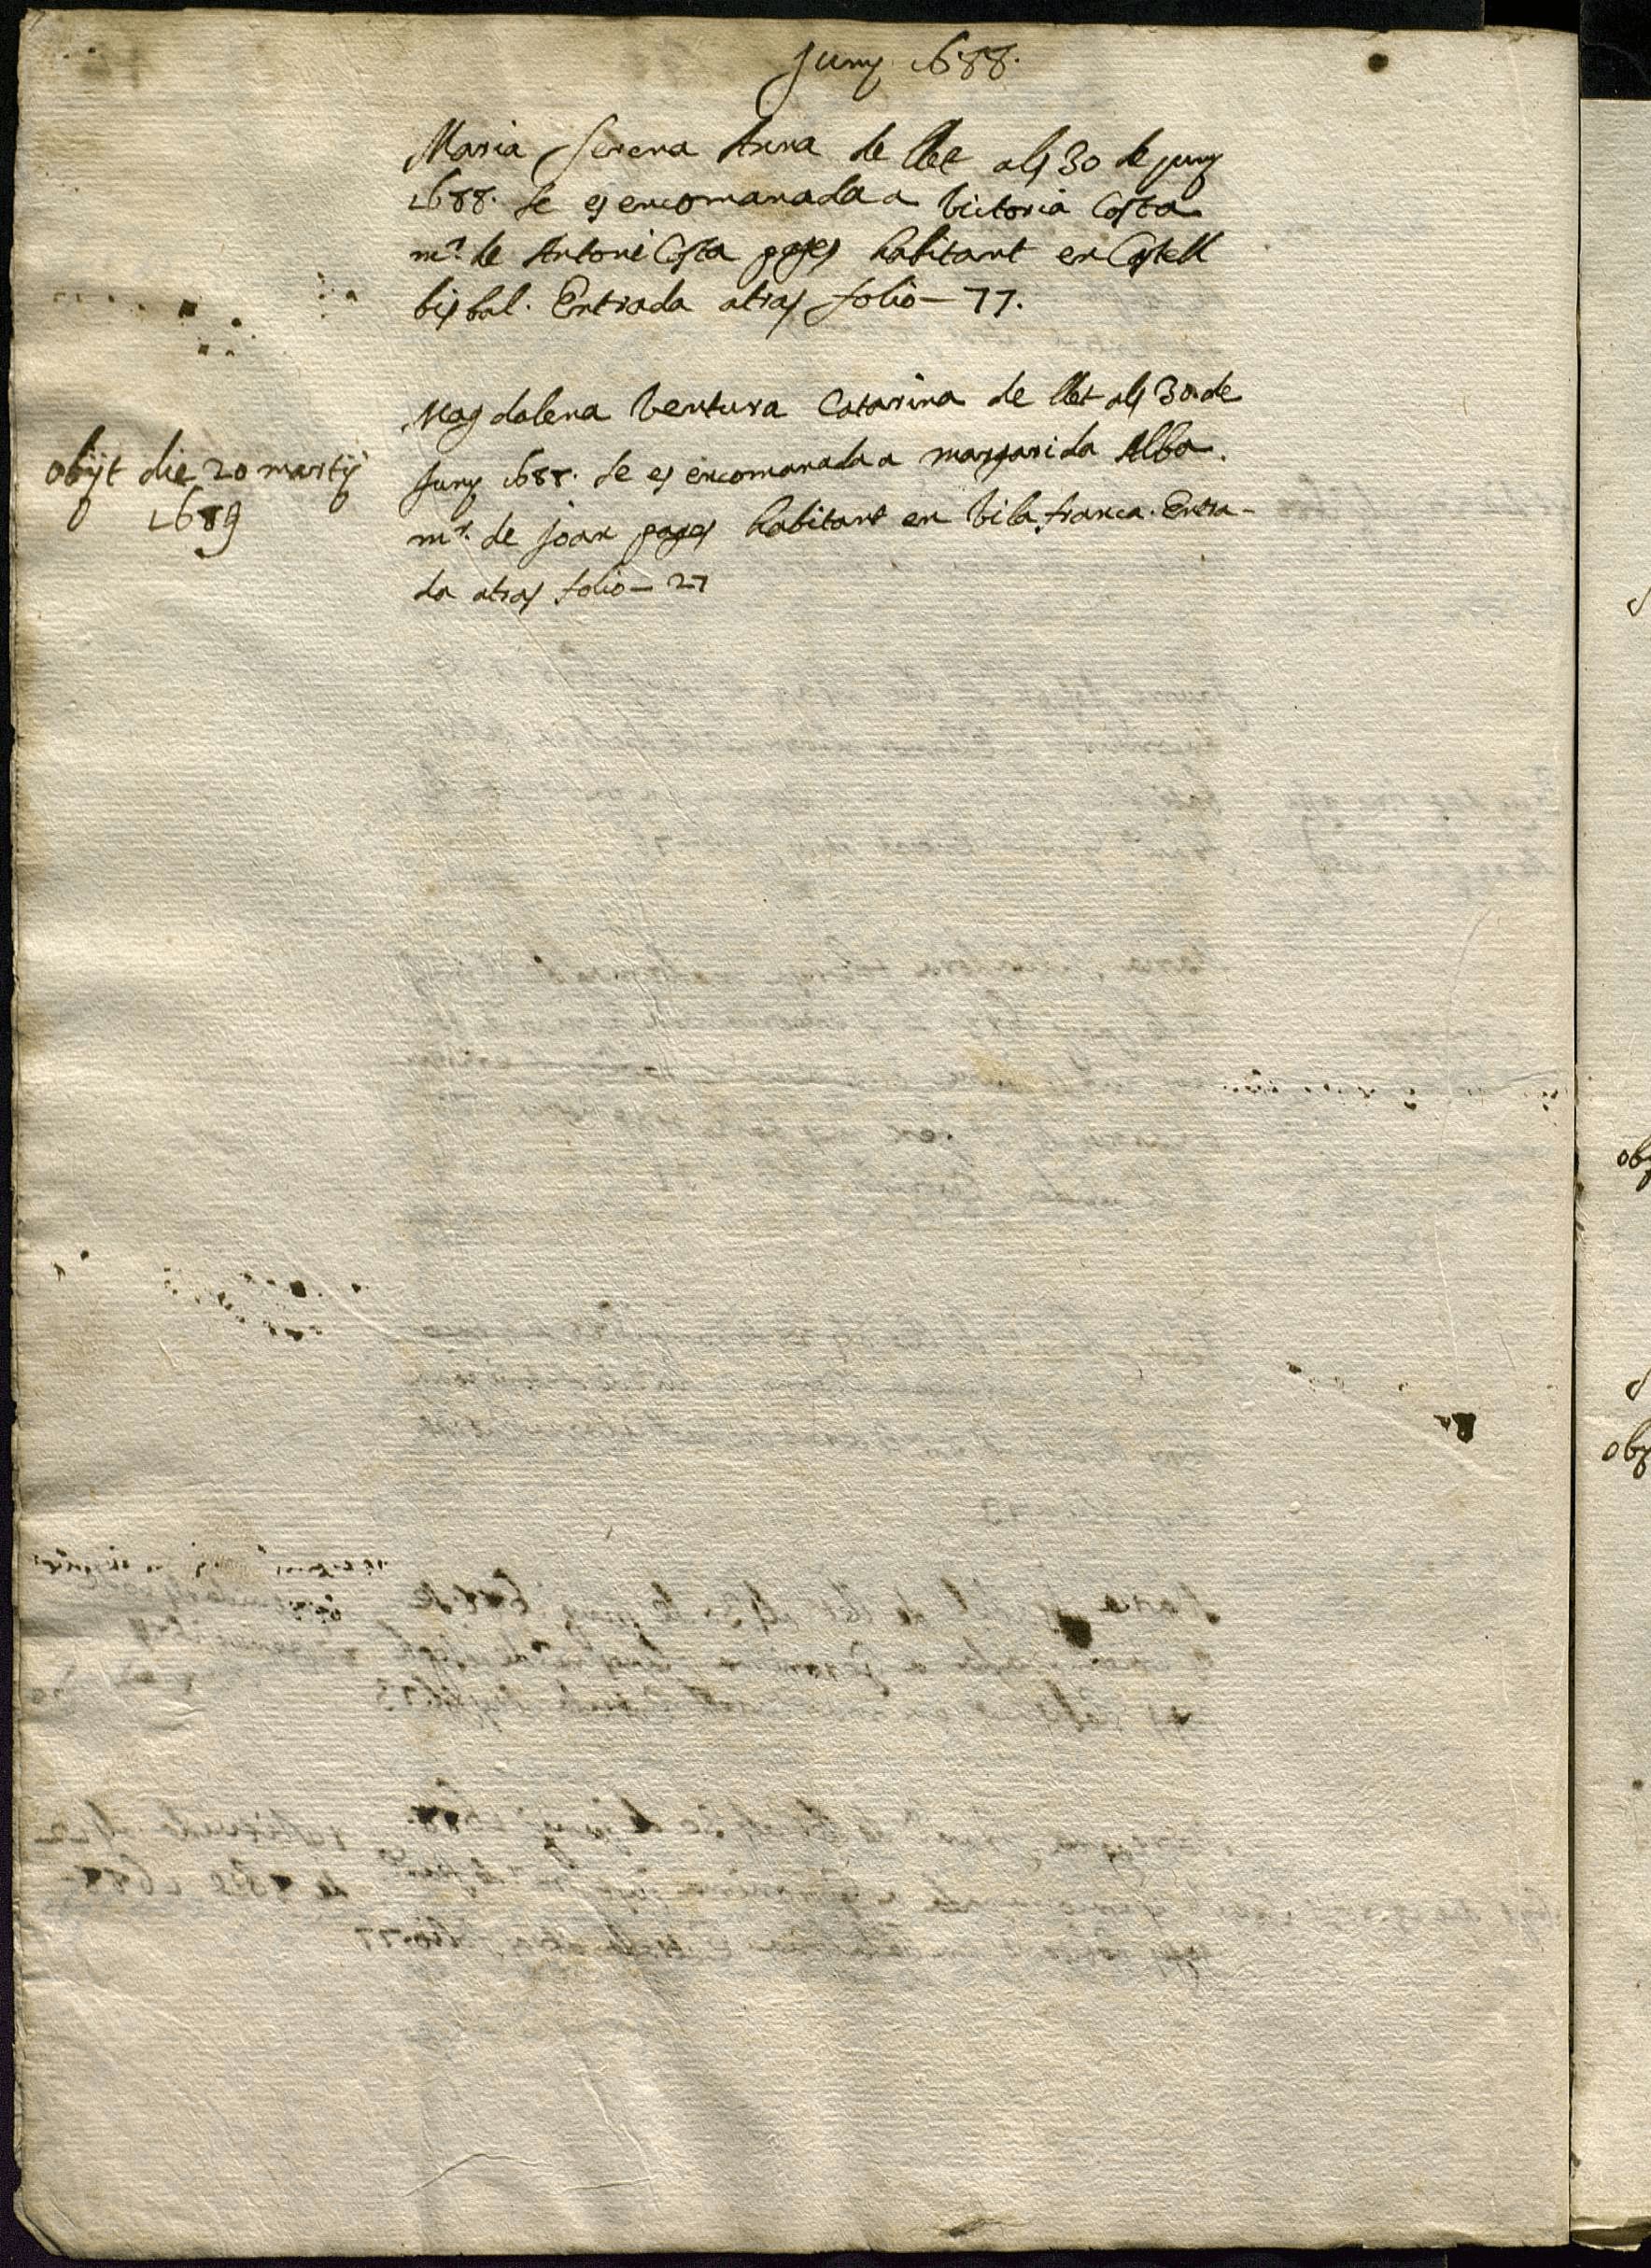 Juny 1688.
Maria Serena Anna de llet als 30 de juny
1688. se es encomanada a Victoria Costa
mr. de Antoni Costa pages habitant en Castell
bisbal. Entrada atras folio - 77.
Magdalena Ventura Catarina de llet als 30 de
Juny 1688. se es encomanada a margarida Alba.
mr. de joan pages habitant en Vila franca. Entra-
da atras folio - 27
obijt die 20 martij
1689